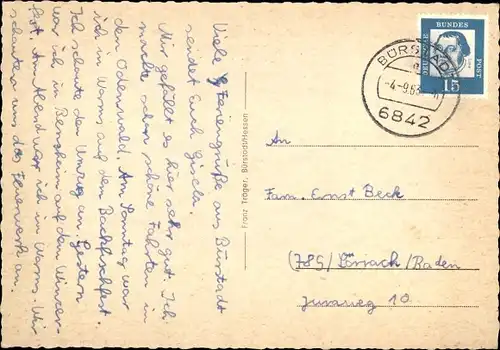 Viele Feriengrüße aus Bürstadt
sendet Euch Gisela.
Mir gefällt es hier sehr gut. Ich
machte schon schöne Fahrten im
den Odenwald. Am Sonntag war
ich in Worms auf dem Backfischfest.
Ich schaute den Umzug an. Gestern
war ich in Bensheim auf dem Winzer-
fest. Am Abend war ich in Worms. Wir
schauten uns das Feuerwerk an.
Franz Träger, Bürstadt/Hessen
DEUTSCHE
BUNDES
POST
15
BÜRSTADT
-4.-9.63.
6842
An
Fam. Ernst Beck
(785) Lörrach/Baden
10